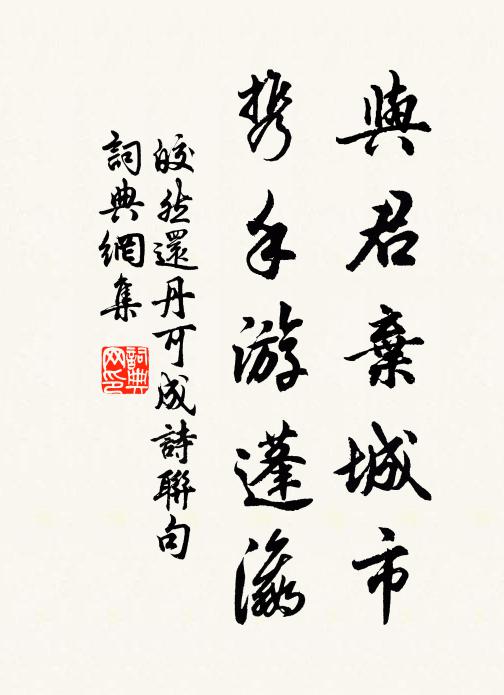 與君棄城市
携手游蓬瀛
皎然還丹可成詩聯句
詞典網集
詞典网印